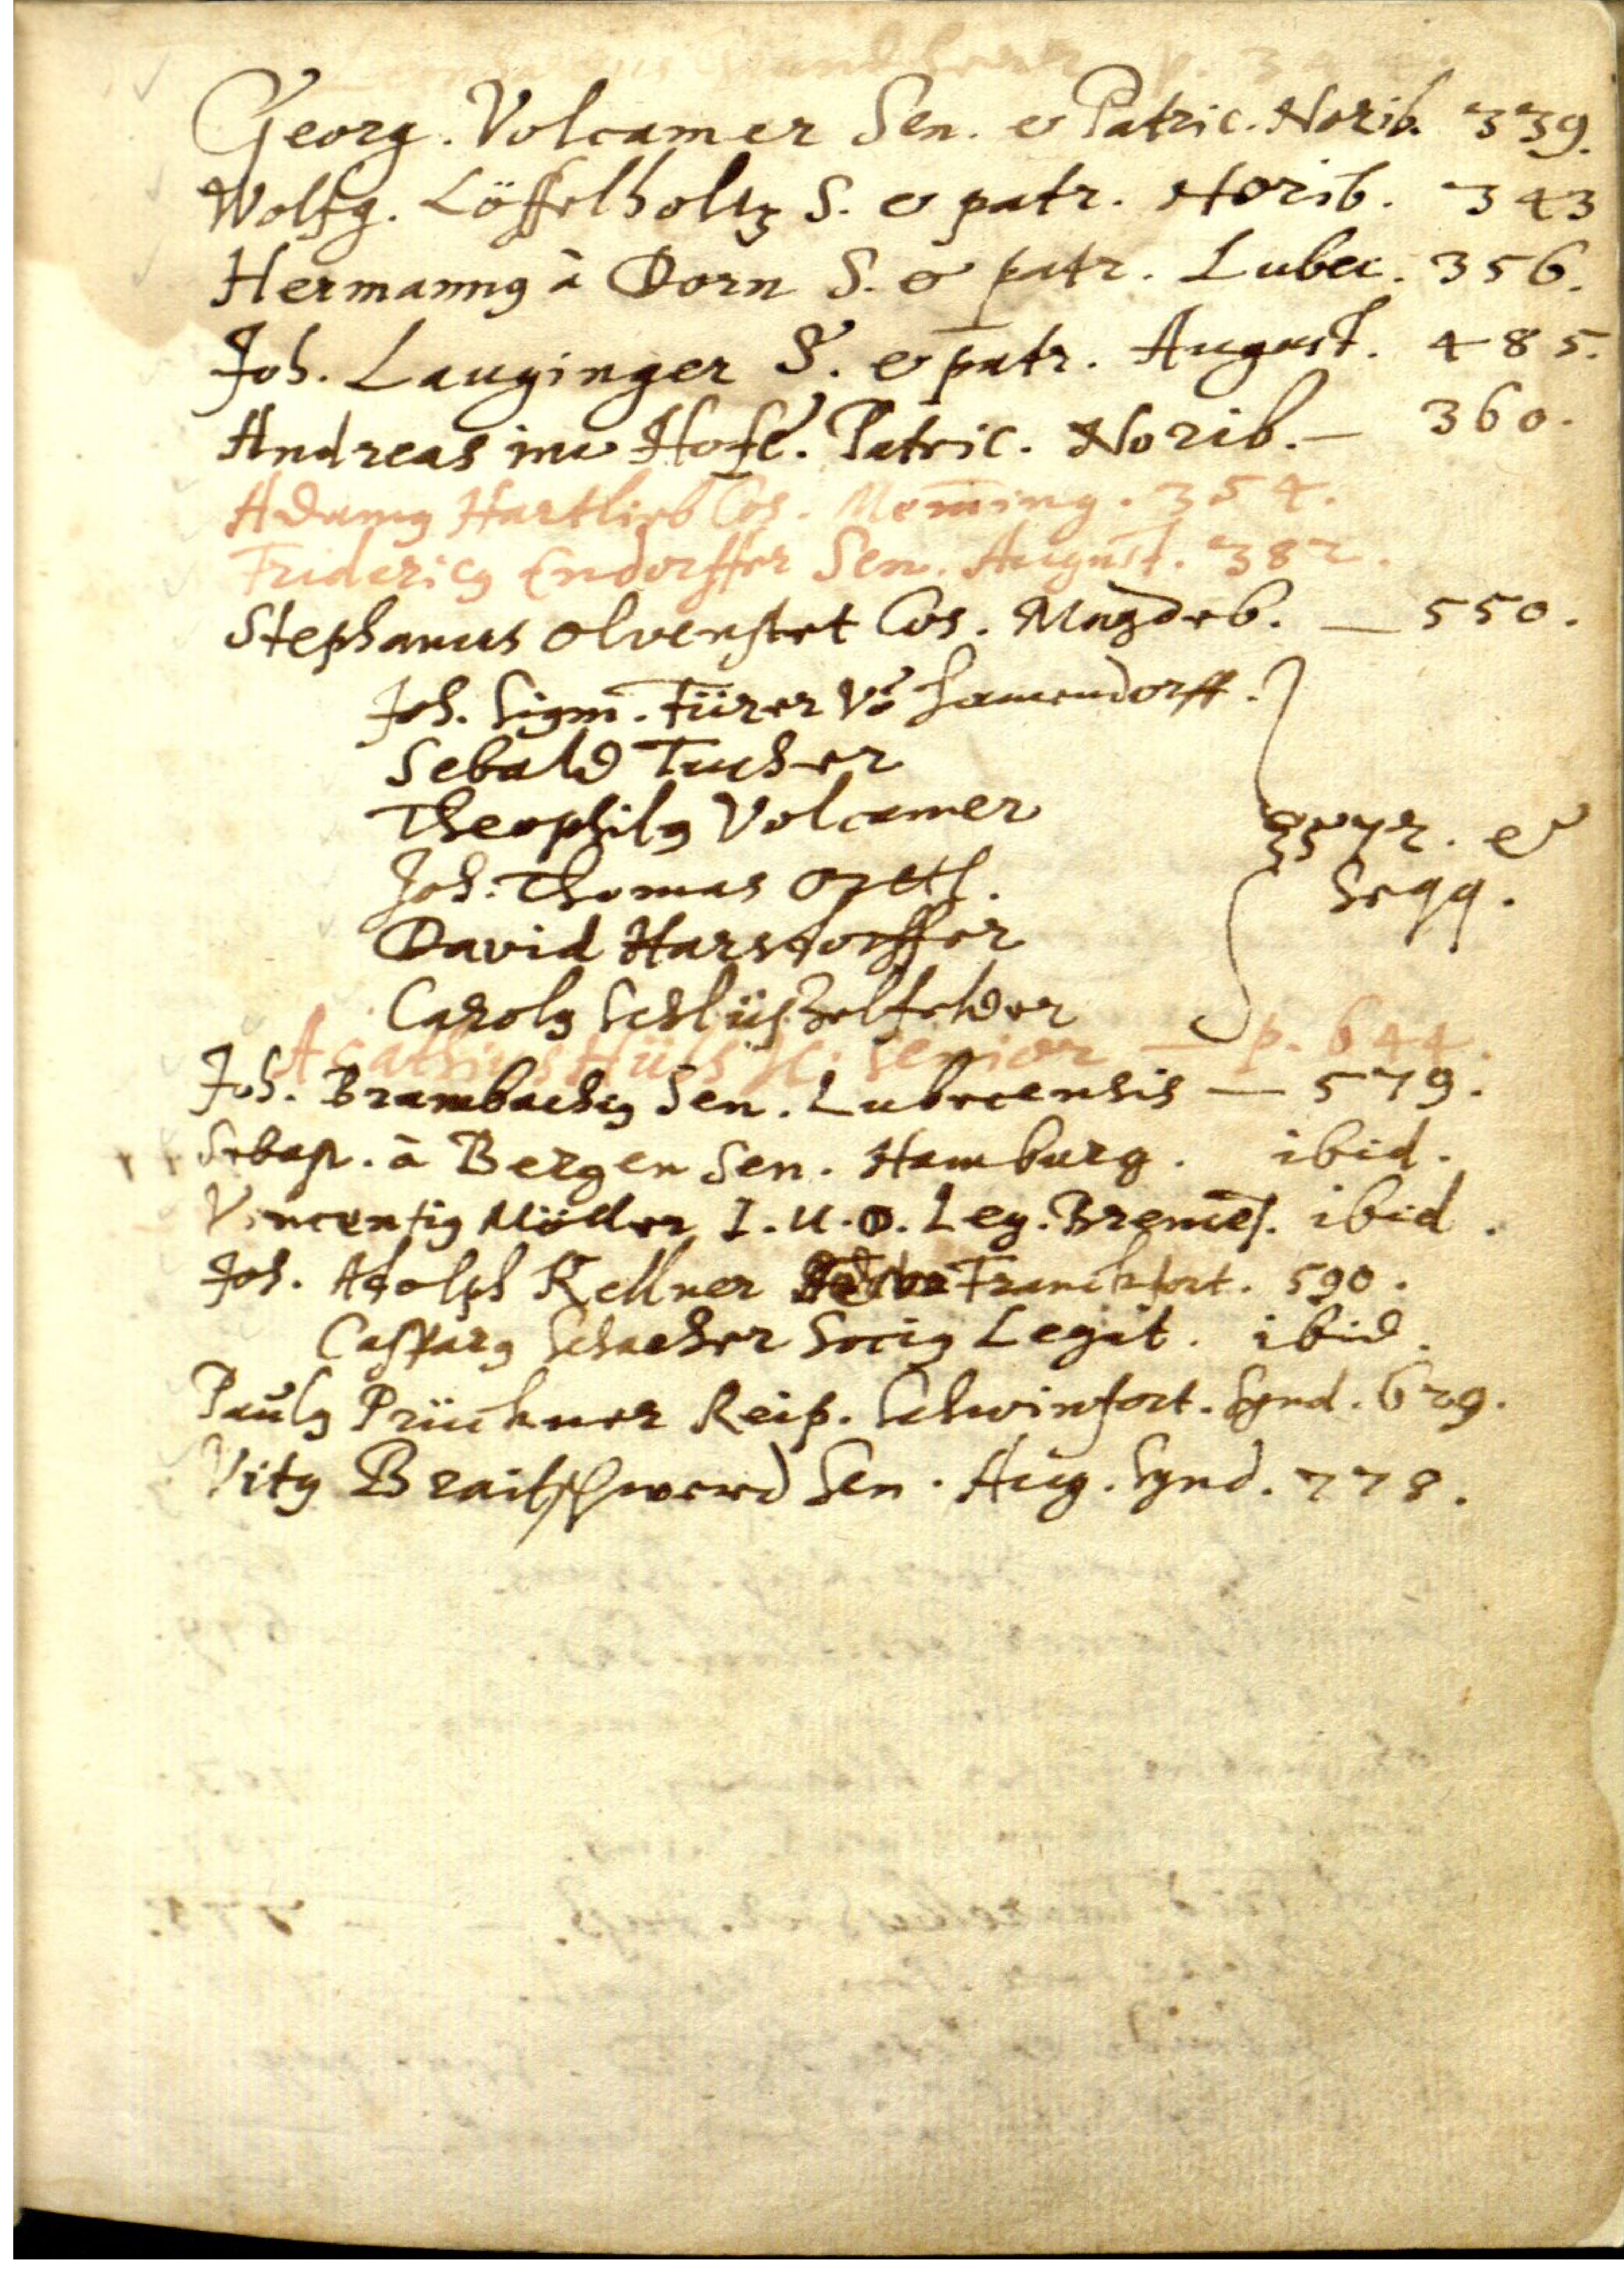 p. 34
Georg. Volcamer Sen. & Patric. Norib. 339.
Wolfg. Löffelholtz S. & patr. Norib. 343
Hermannꝰ à Dorn S. & patr. Lubec. 356.
Joh. Lauginger S. & patr. August. 485.
Andreas im Hofe. Patric. Norib. — 360.
Adamꝰ Hartlieb Cos. Mem̄ing. 354.
Fridericꝰ Endorffer Sen. August. 382.
Stephanus Olvenstet Cos. Magdeb. — 550.
Joh. Sigm. Fürer Vō Haimendorff.
Sebald Tucher
Theophilꝰ Volcamer
Joh. Thomas Örtl.
David Harsdorffer
Carolꝰ Schlüsselfelder
572. & seqq.
Acathius Hüls senior — p. 644.
Joh. Brambachꝰ Sen. Lubecensis — 579.
Sebast. à Bergen Sen. Hamburg. ibid.
Vincentiꝰ Möller I. U. D. Leg. Bremēs. ibid.
Joh. Adolph Kellner Franckfort. 590.
Casparꝰ Schacher Sociꝰ Legat. ibid.
Paulꝰ Prückner Reip. Schwinfort. Synd. 629.
Vitꝰ Braitschwerd Sen. Aug. Synd. 778.